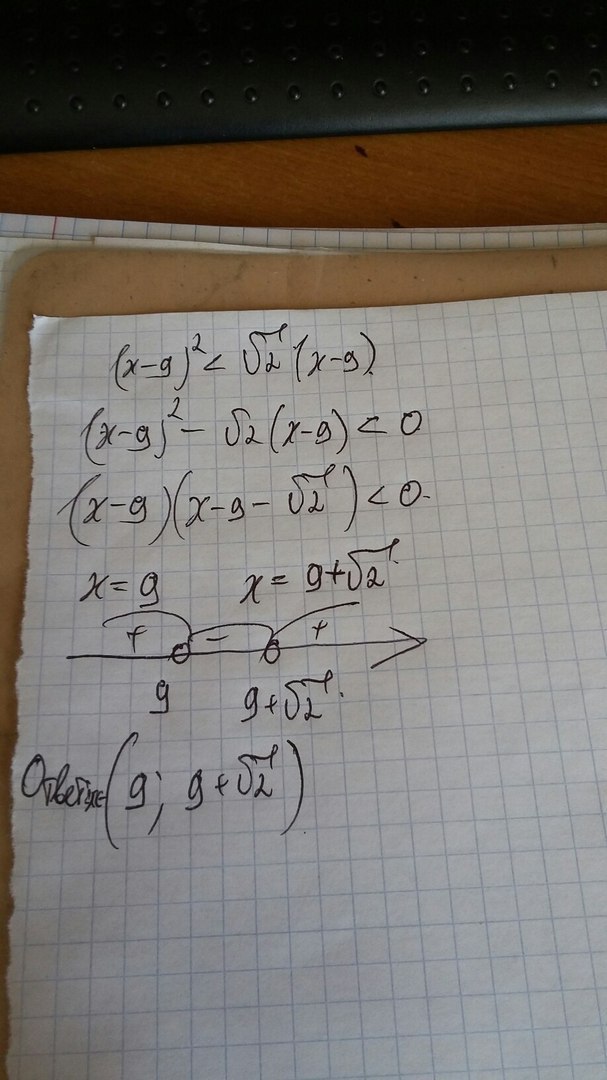 (x-9)² < √2 (x-9)
(x-9)² - √2(x-9) < 0
(x-9)(x-9-√2) < 0.
x=9 x= 9+√2.
+ - +
9 9+√2.
(9; 9+√2)